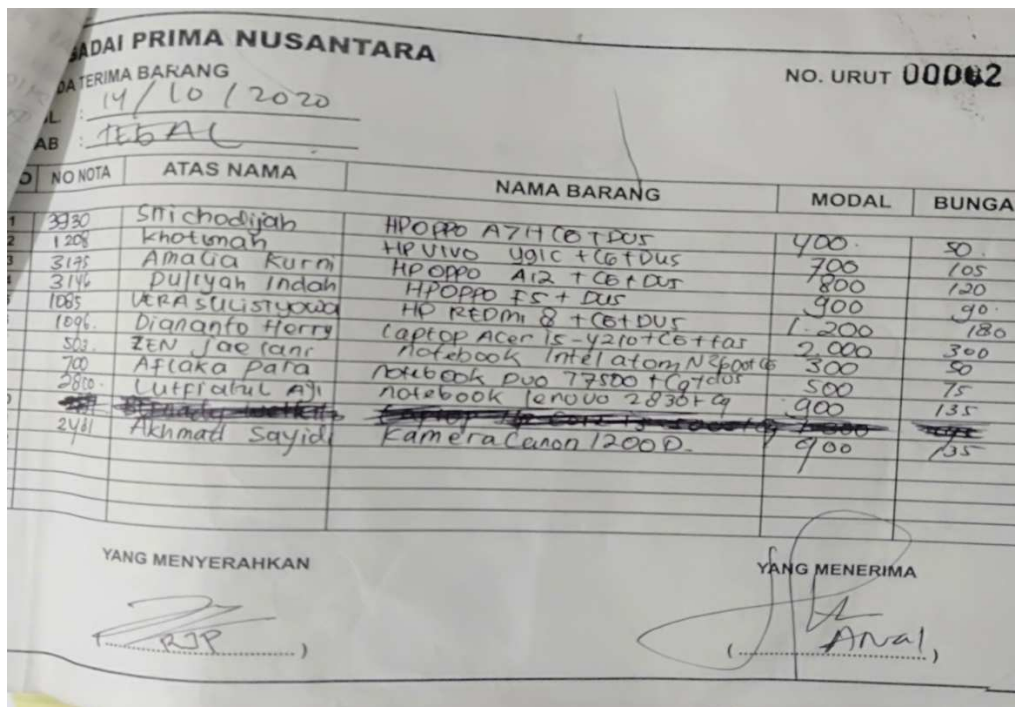 GADAI PRIMA NUSANTARA
DA TERIMA BARANG
NO. URUT 00002
L. : 14/10/2020
AB : TEGAL
NO NOTA ATAS NAMA NAMA BARANG MODAL BUNGA
1 3930 Siti chodijah HP OPPO A7H CG + DUS 400. 50.
2 1208 Khotimah HP VIVO Y91C + CG + DUS 700 105
3 3175 Amalia Kurni HP OPPO A12 + CG + DUS 800 120
3146 Duliyah Indah HP OPPO F5 + DUS 900 90.
1085 VERA SULISTYOWA HP REDMI 8 + CG + DUS 1.200 180
1096. Diananto Herry Laptop Acer i5-4210 + CG + tas 2.000 300
503. ZEN Jaelani notebook Intel atom N2600 + CG 300 50
700 Aflaka para notebook DUO T7500 + Cg + dus 500 75
2800. Lutfiatul Aji notebook lenovo 2830 + Cg 900 135
2481 Akhmad Sayidi Kamera Canon 1200 D. 900 135
YANG MENYERAHKAN YANG MENERIMA
(RJP) (Anal)